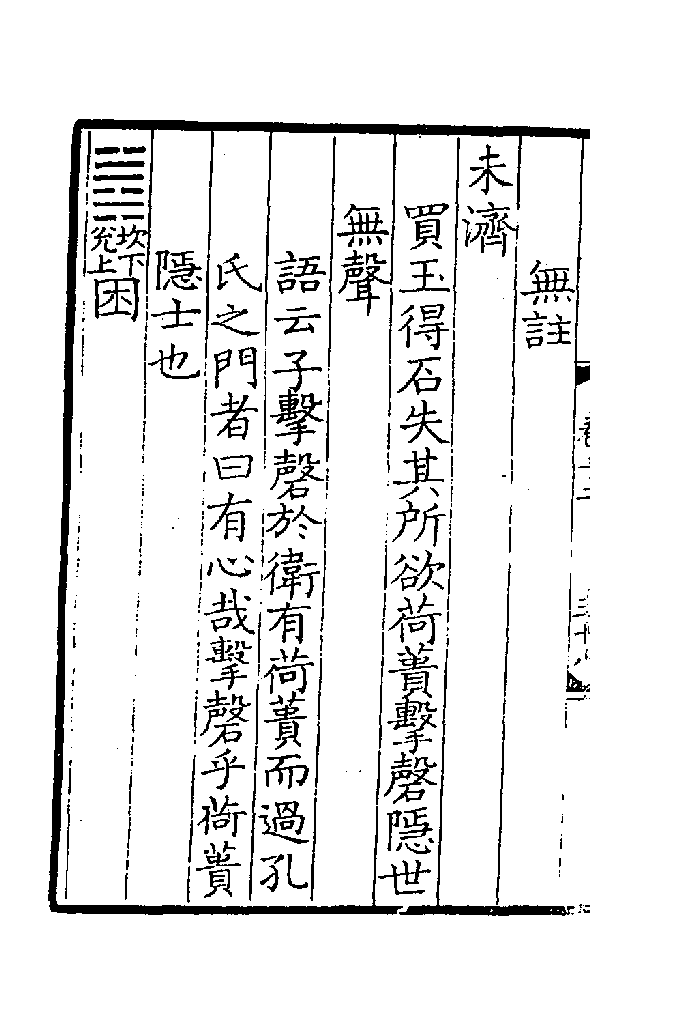 無註
未濟
買玉得石失其所欲荷蕢擊磬隱世
無聲
語云子擊磬於衛有荷蕢而過孔
氏之門者曰有心哉擊磬乎荷蕢
隱士也
坎下兌上困